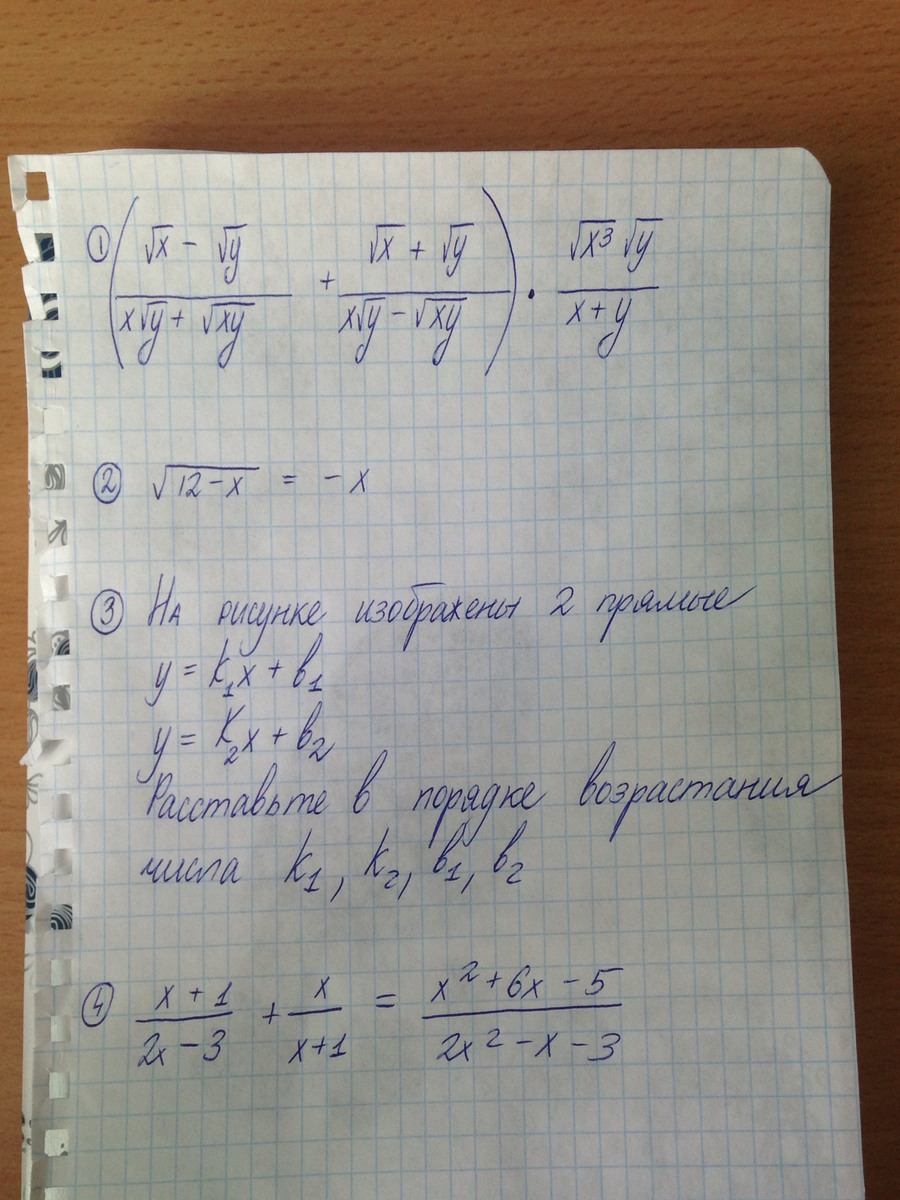 ① ( (√x - √y)/(x√y + √xy) + (√x + √y)/(x√y - √xy) ) · (√x³ √y)/(x + y)
② √12 - x = - x
③ На рисунке изображены 2 прямые
y = k₁x + b₁
y = k₂x + b₂
Расставьте в порядке возрастания
числа k₁, k₂, b₁, b₂
④ (x + 1)/(2x - 3) + x/(x+1) = (x² + 6x - 5)/(2x² - x - 3)